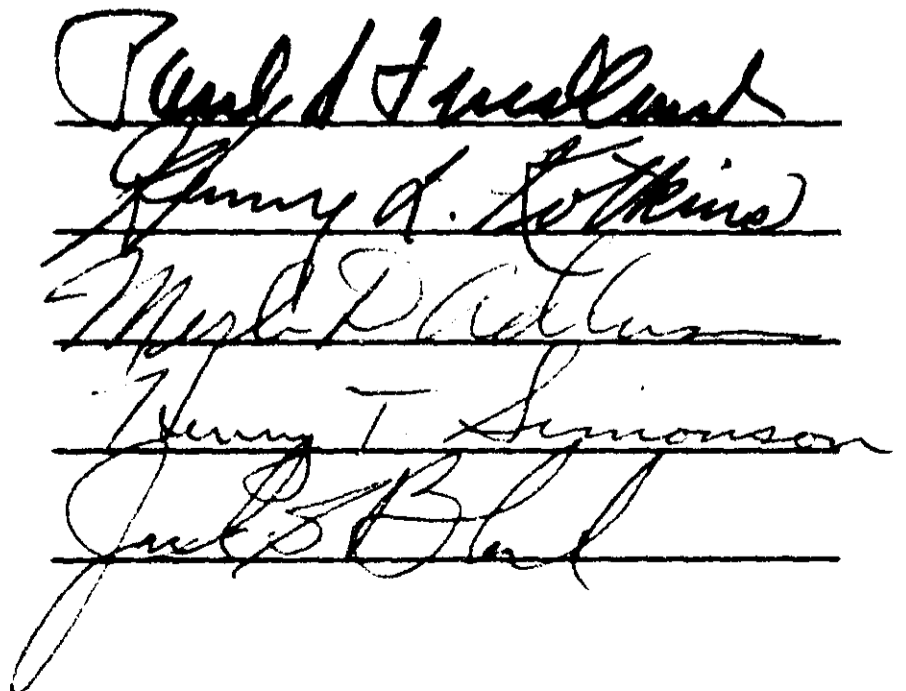 Paul S Friedlund
Henry L. Kotkins
Merle D Adlum
Henry T. Simonson
Jack S Block